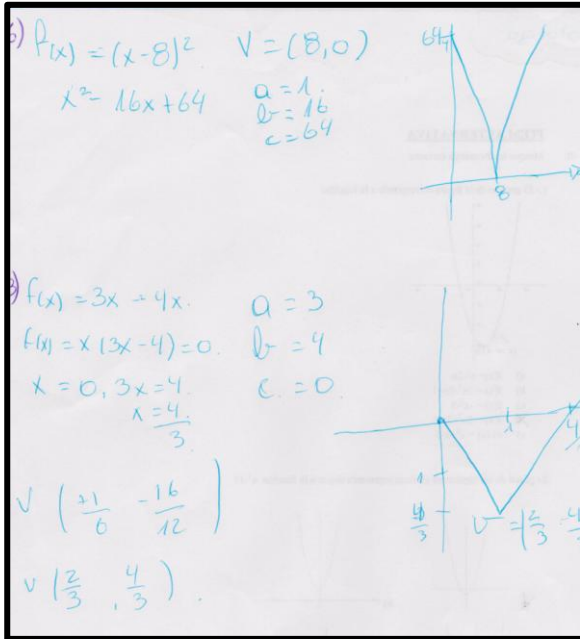 6) f(x) = (x-8)² V = (8,0)
x² - 16x + 64
a = 1.
b = 16
c = 64
64
8
f(x) = 3x - 4x.
f(x) = x (3x-4) = 0.
x = 0, 3x = 4.
x = 4.
3
a = 3
b = 4
c = 0
V ( +1/6 -16/12 )
V ( 2/3 , 4/3 ) .
1
4/3
1
4
V = ( 2/3 - 4/3